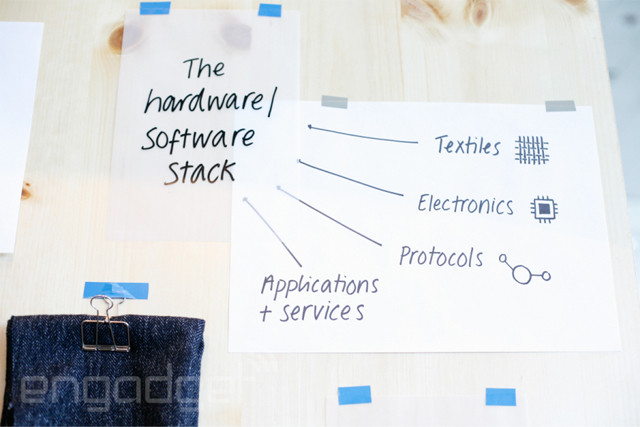 The
hardware/
software
stack
Textiles
Electronics
Protocols
Applications
+ services
engadget